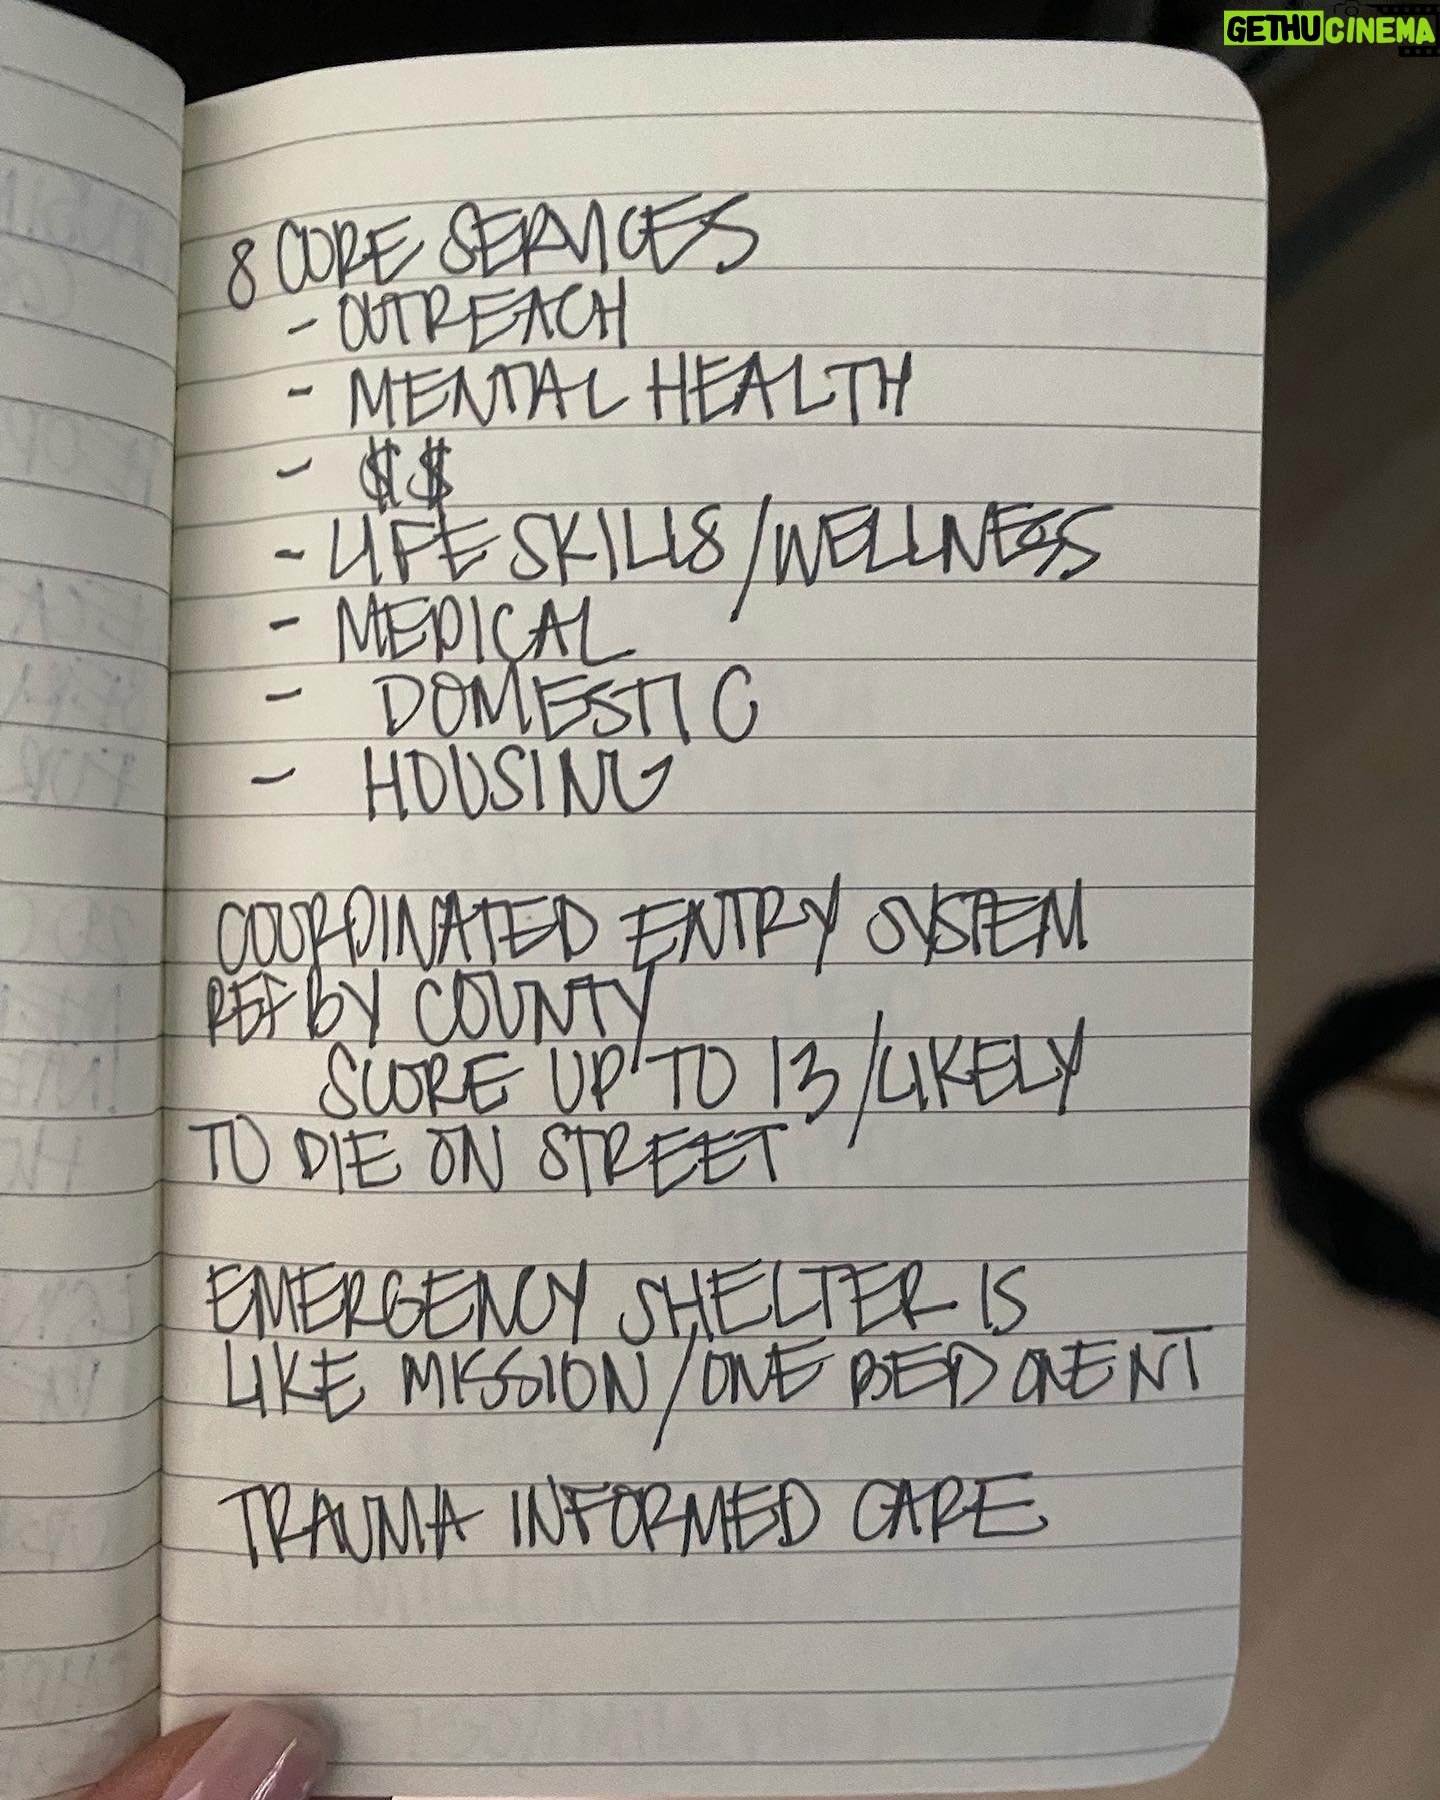 GETHUCINEMA
8 CORE SERVICES
- OUTREACH
- MENTAL HEALTH
- $$
- LIFE SKILLS/WELLNESS
- MEDICAL
- DOMESTIC
- HOUSING
COORDINATED ENTRY SYSTEM
REF BY COUNTY
SCORE UP TO 13/LIKELY
TO DIE ON STREET
EMERGENCY SHELTER IS
LIKE MISSION/ONE BED ONE NT
TRAUMA INFORMED CARE